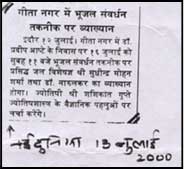 गीता नगर में भूजल संवर्धन
तकनीक पर व्याख्यान
इंदौर १२ जुलाई। गीता नगर में डॉ.
प्रदीप आप्टे के निवास पर १६ जुलाई को
सुबह ११ बजे भूजल संवर्धन तकनीक पर
प्रसिद्ध जल विशेषज्ञ श्री सुधीन्द्र मोहन
शर्मा तथा डॉ. नारुलकर का व्याख्यान
होगा। ज्योतिषी श्री शशिकांत गुप्ते
ज्योतिषशास्त्र के वैज्ञानिक पहलुओं पर
चर्चा करेंगे।
नईदुनिया 13 जुलाई
2000